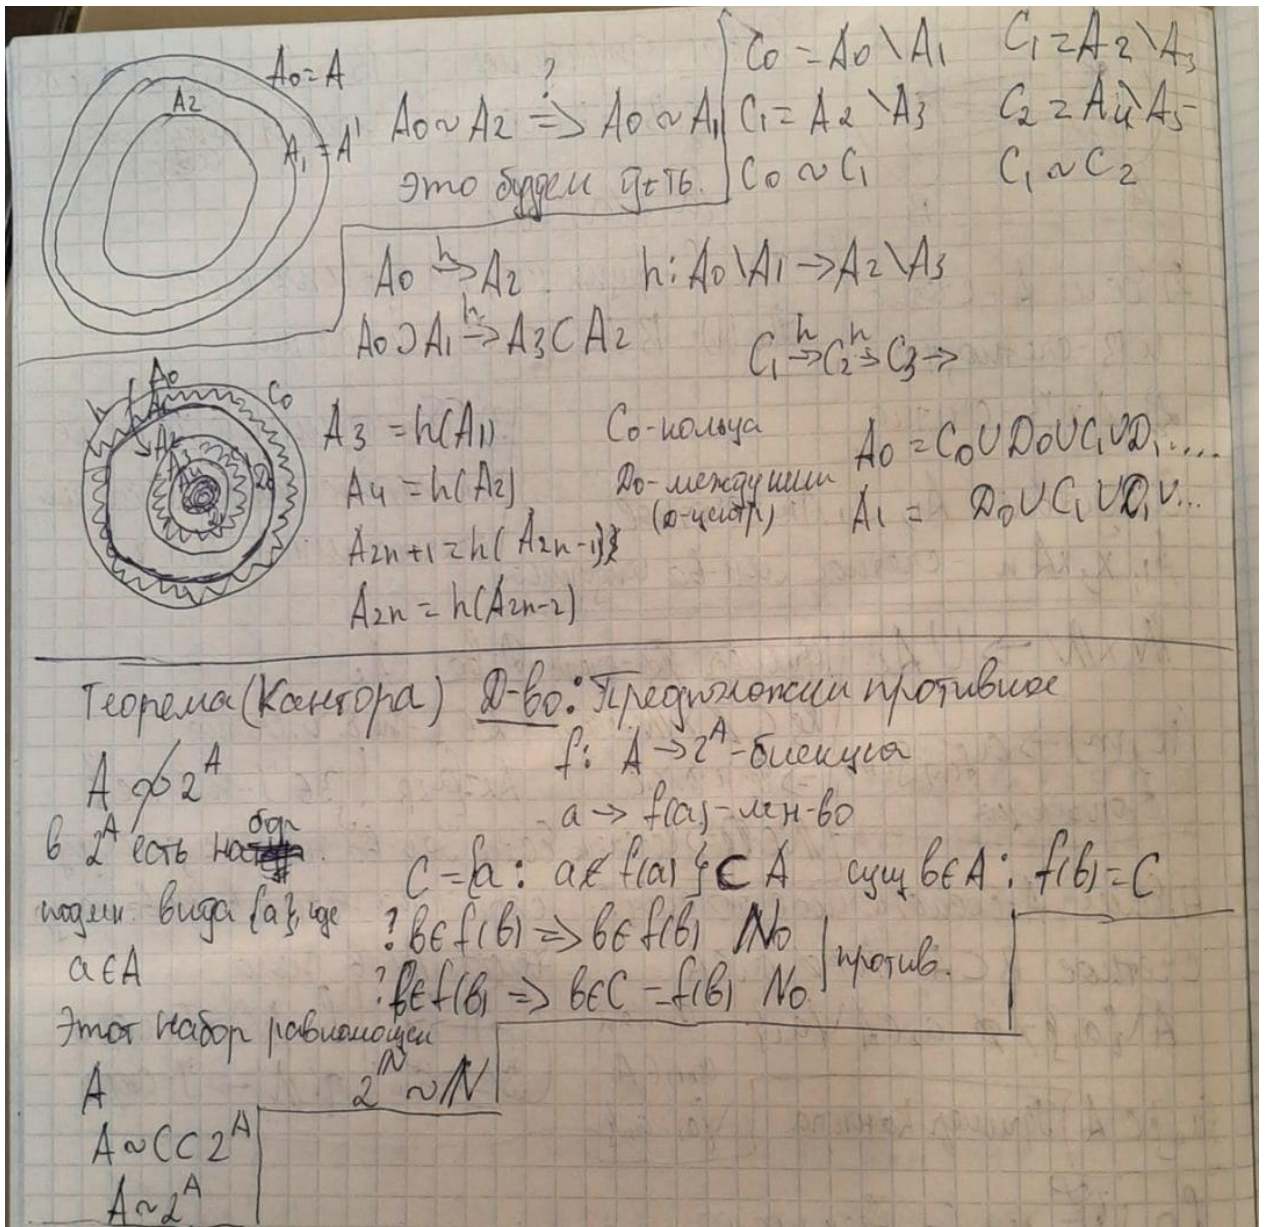 A₀ = A
A₂
A₁ = A'
A₀ ~ A₂ ?⇒ A₀ ~ A₁
это будем д-ть.
C₀ = A₀ \ A₁
C₁ = A₂ \ A₃
C₀ ~ C₁
C₁ = A₂ \ A₃
C₂ = A₄ \ A₅
C₁ ~ C₂
A₀ →ʰ A₂
h: A₀ \ A₁ → A₂ \ A₃
A₀ ⊃ A₁ →ʰ A₃ ⊂ A₂
C₁ →ʰ C₂ →ʰ C₃ →
h A₀ C₀
A₁
A₂ D₀
A₃ = h(A₁)
A₄ = h(A₂)
A₂ₙ₊₁ = h(A₂ₙ₋₁)
A₂ₙ = h(A₂ₙ₋₂)
C₀ - кольца
D₀ - между ними
(D - центр)
A₀ = C₀ ∪ D₀ ∪ C₁ ∪ D₁ ....
A₁ = D₀ ∪ C₁ ∪ D₁ ∪ ...
Теорема (Кантора)
A ≁ 2ᴬ
в 2ᴬ есть набор
подмн вида {a}, где
a ∈ A
Этот набор равномощен
A
A ~ C ⊂ 2ᴬ
A ~ 2ᴬ
Д-во: Предположим противное
f: A → 2ᴬ - биекция
a → f(a) - мн-во
C = {a : a ∉ f(a)} ⊂ A сущ b ∈ A : f(b) = C
? b ∈ f(b) ⇒ b ∉ f(b) No
? b ∉ f(b) ⇒ b ∈ C = f(b) No
против.
2ᴺ ~ ℕ